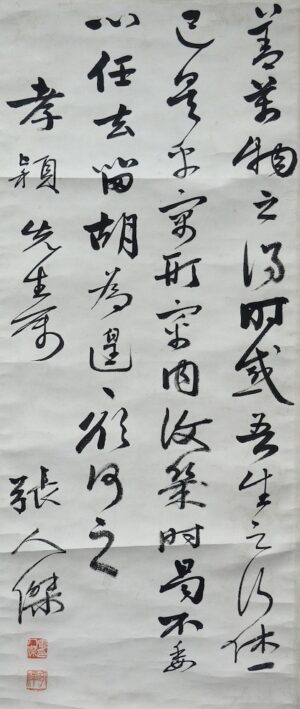 善萬物之得時感吾生之行休
已矣乎寓形宇内復幾時曷不委
心任去留胡為遑〻欲何之
孝穎先生屬
張人傑